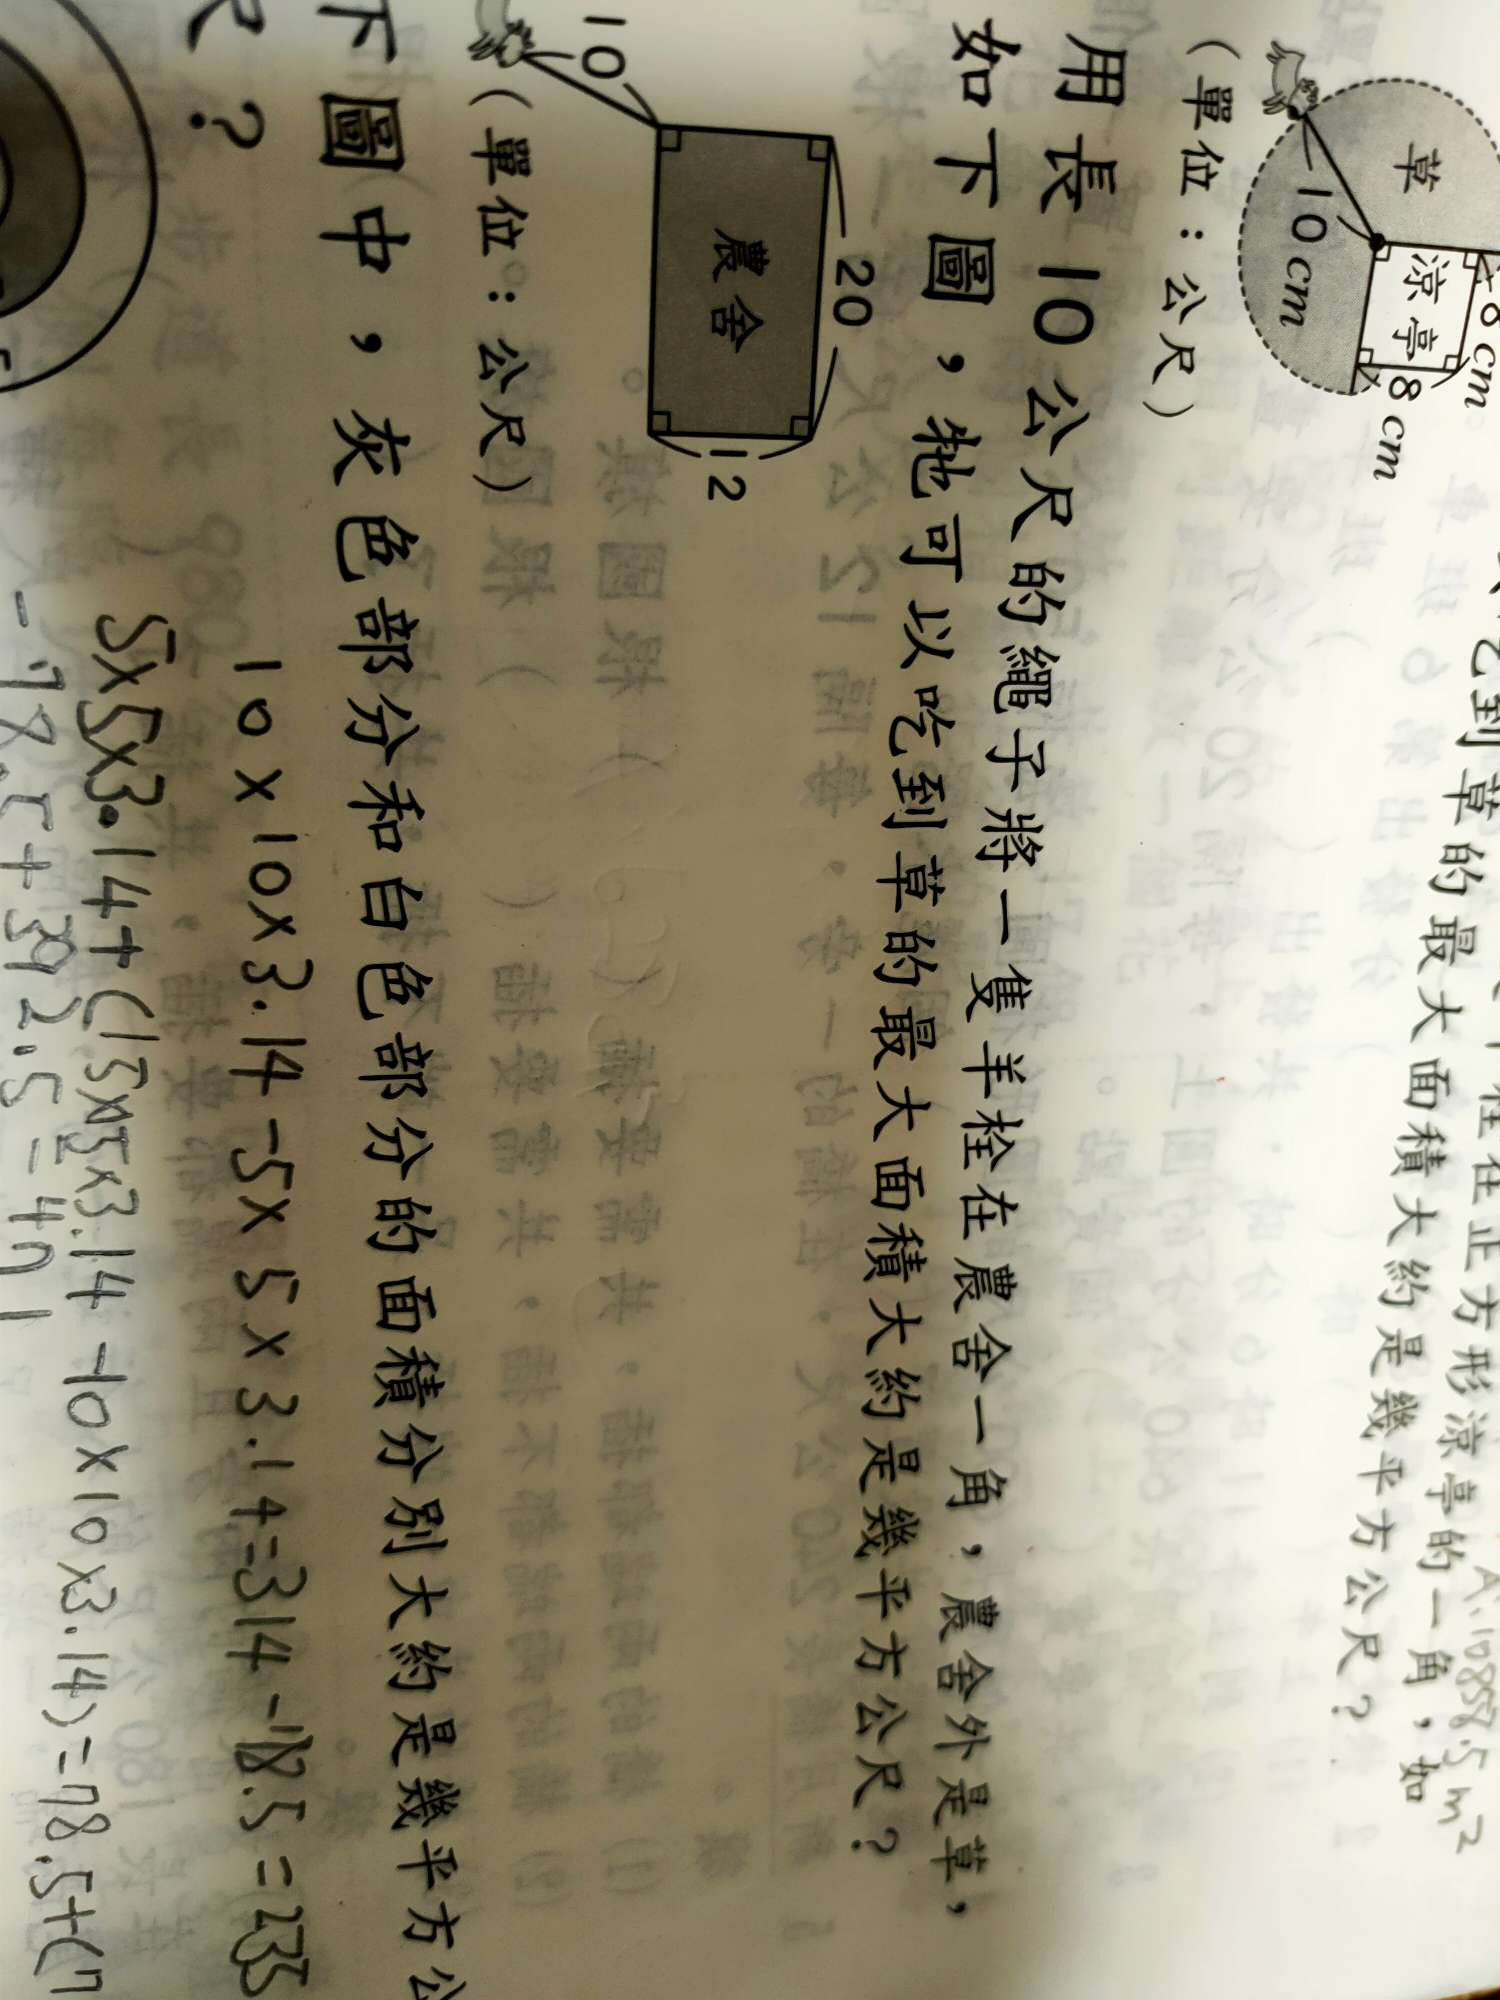 A:10858.5m²
栓在正方形涼亭的一角，如
吃到草的最大面積大約是幾平方公尺？
草
10cm
涼亭
8cm
8cm
（單位：公尺）
用長10公尺的繩子將一隻羊栓在農舍一角，農舍外是草，
如下圖，牠可以吃到草的最大面積大約是幾平方公尺？
20
10
農舍
12
（單位：公尺）
下圖中，灰色部分和白色部分的面積分別大約是幾平方公
尺？
10×10×3.14-5×5×3.14=314-78.5=235
5×5×3.14+(15×15×3.14-10×10×3.14)=78.5+(7
-78.5+392.5=471
5